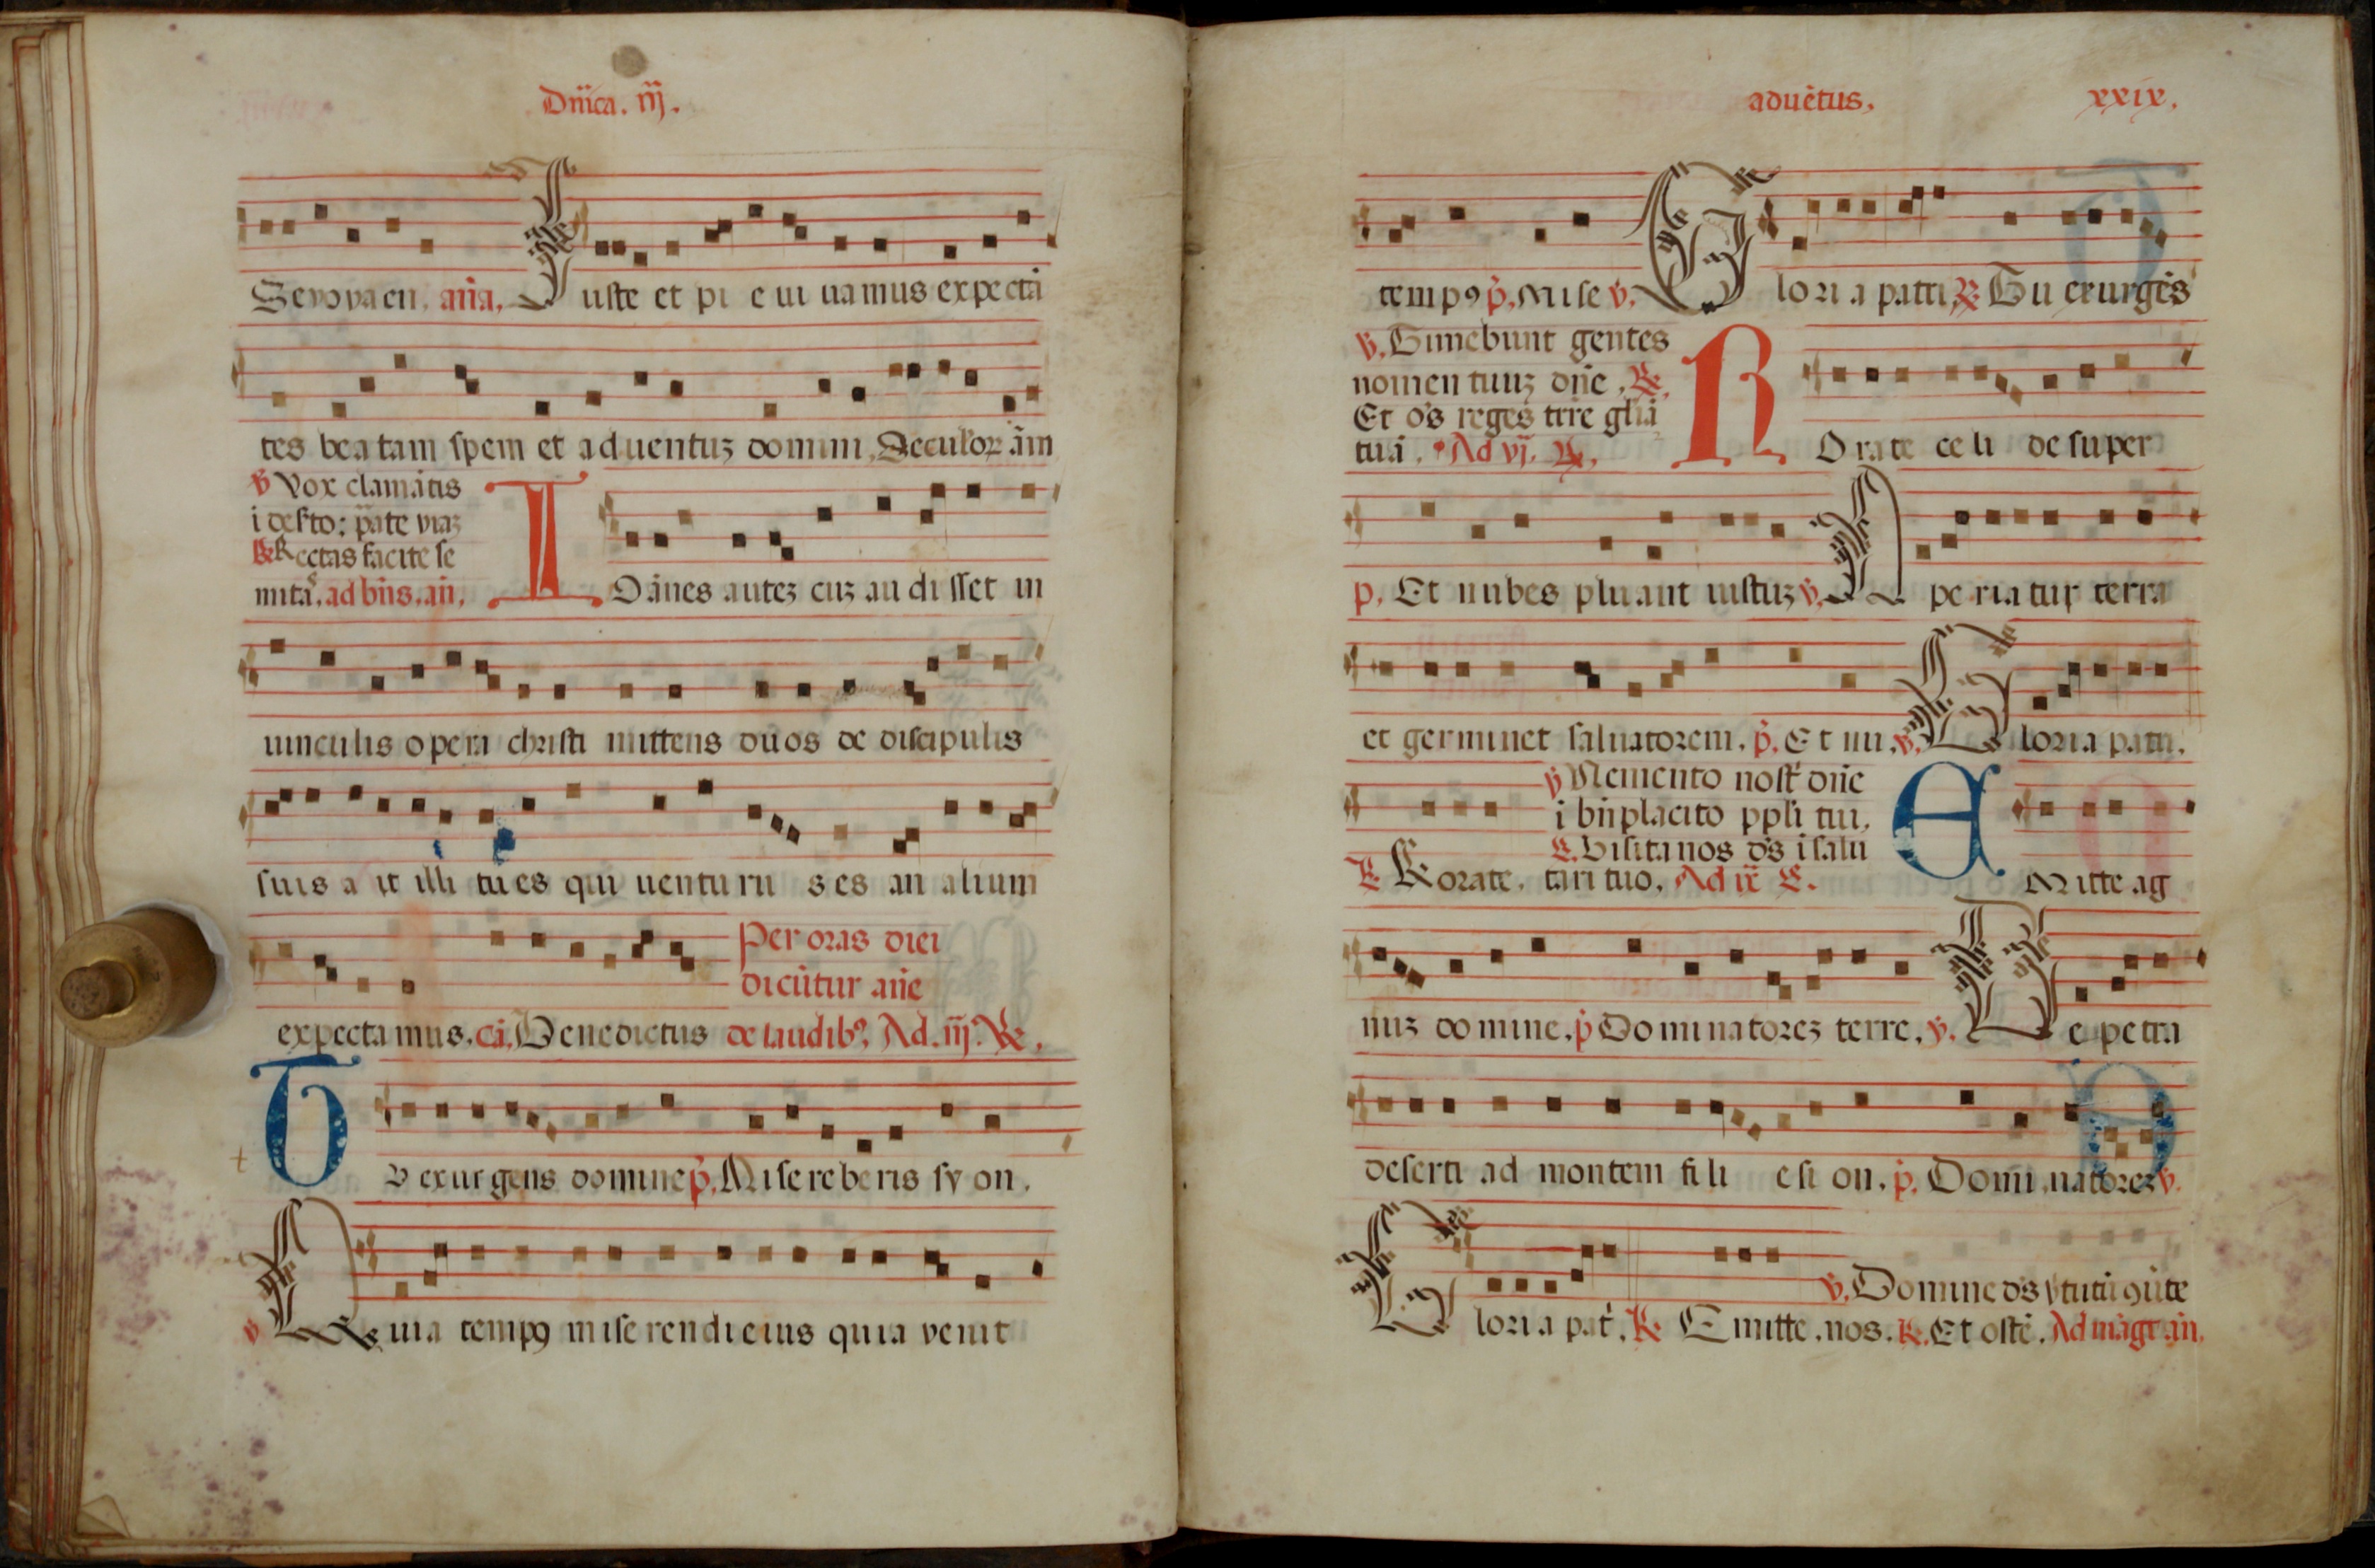 Dñica. iij.
Sevovaen. aña. Iuste et pi e ui uamus expectã
tes beatam spem et aduentuz domini. Seculor. ãm
v Vox clamãtis
i deserto: pãte viaz
R Rectas facite se
mitã. ad bñs. añ.
IOãnes autez cuz audisset in
uinculis opera christi mittens duos de discipulis
suis a it illi tu es qui uenturu s es an alium
expectamus. cã. Benedictus de laudib9. Ad. iij. R.
Per oras diei
dicũtur añe
t
TV exurgens domine p. Misereberis syon.
v Quia temp9 miserendi eius quia venit
aduẽtus.
xxix.
temp9 p. Mise v. Gloria patri R Tu exurgẽs
v. Timebunt gentes
nomen tuuz dñe. R.
Et oẽs reges terre glia
tuã. Ad vj. R.
ROrate celi desuper
p. Et nubes pluant iustuz v. Aperiatur terra
et germinet saluatorem. p. Et nu. v. Gloria patri.
v Memento nost dñe
i bñplacito ppli tui.
R. Visita nos ds i salu
R Rorate. tari tuo. Ad ix R.
EMitte ag
nuz domine. p Dominatorez terre. v. De petra
deserti ad montem fili e si on. p. Domi natorez v.
v. Domine ds vtutũ 9ũte
Gloria pat. R Emitte. nos. R. Et ostẽ. Ad mãgt añ.